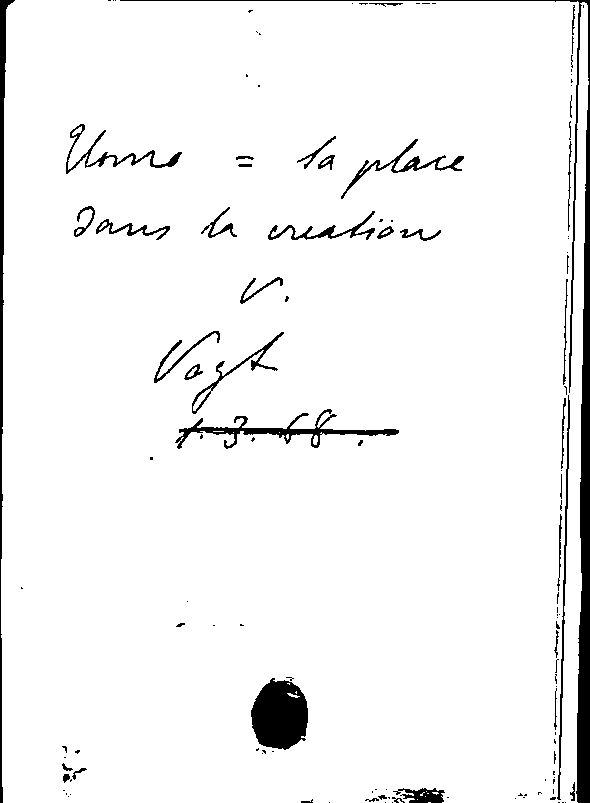 Homo = sa place
dans la creation
v.
Vogt
1. 3. 68.